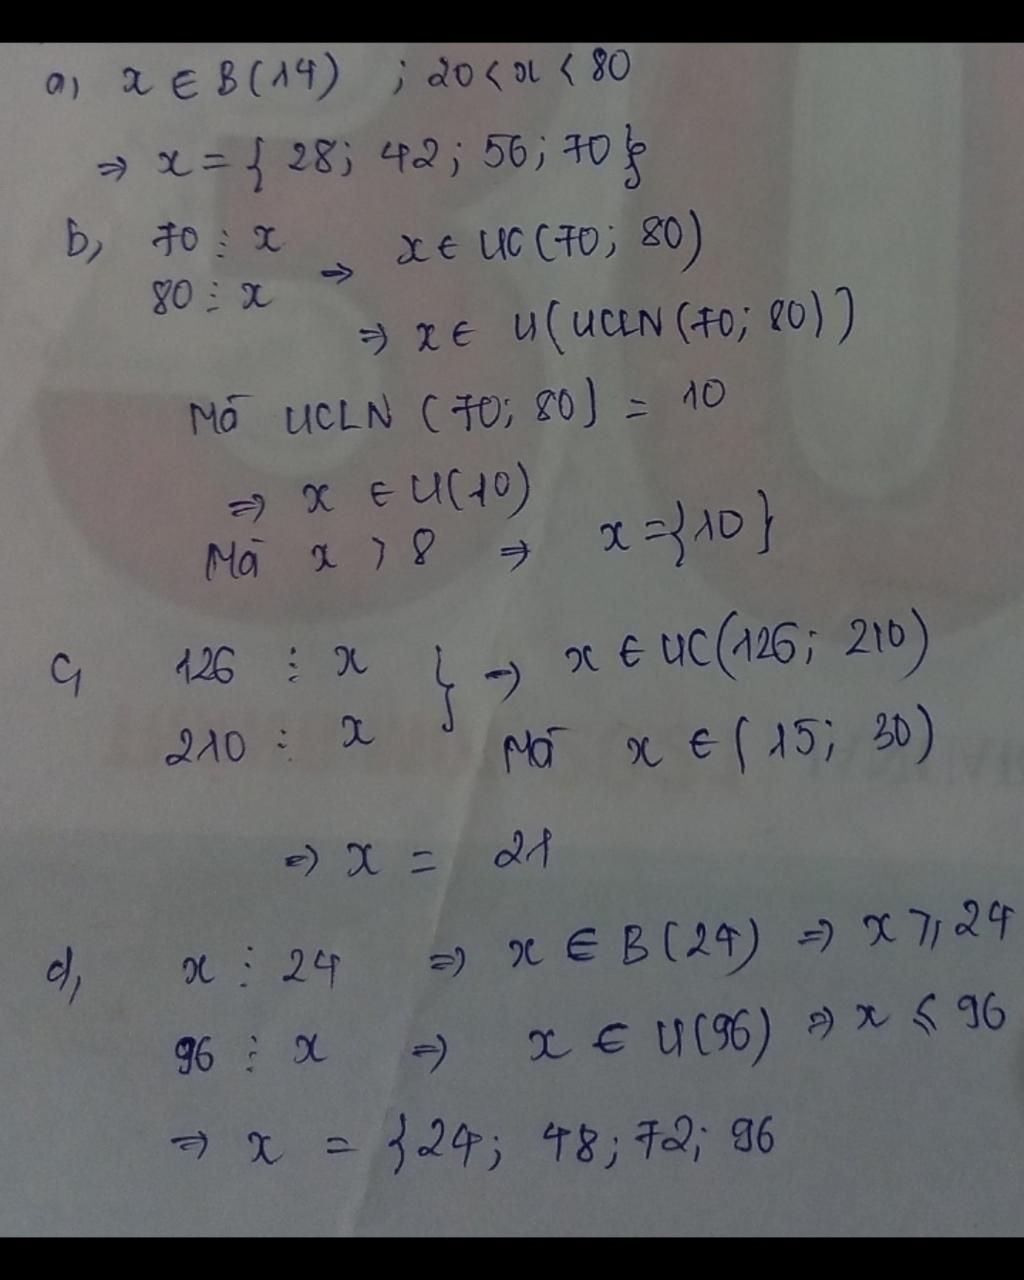 a, x ∈ B(14) ; 20 < x < 80
⇒ x = { 28; 42; 56; 70 }
b, 70 ⋮ x
80 ⋮ x ⇒ x ∈ ƯC (70; 80)
⇒ x ∈ Ư(ƯCLN (70; 80))
Mà ƯCLN (70; 80) = 10
⇒ x ∈ Ư(10)
Mà x > 8 ⇒ x = {10}
c, 126 ⋮ x } ⇒ x ∈ ƯC(126; 210)
210 ⋮ x Mà x ∈ (15; 30)
⇒ x = 21
d, x ⋮ 24 ⇒ x ∈ B(24) ⇒ x ⩾ 24
96 ⋮ x ⇒ x ∈ Ư(96) ⇒ x ⩽ 96
⇒ x = {24; 48; 72; 96